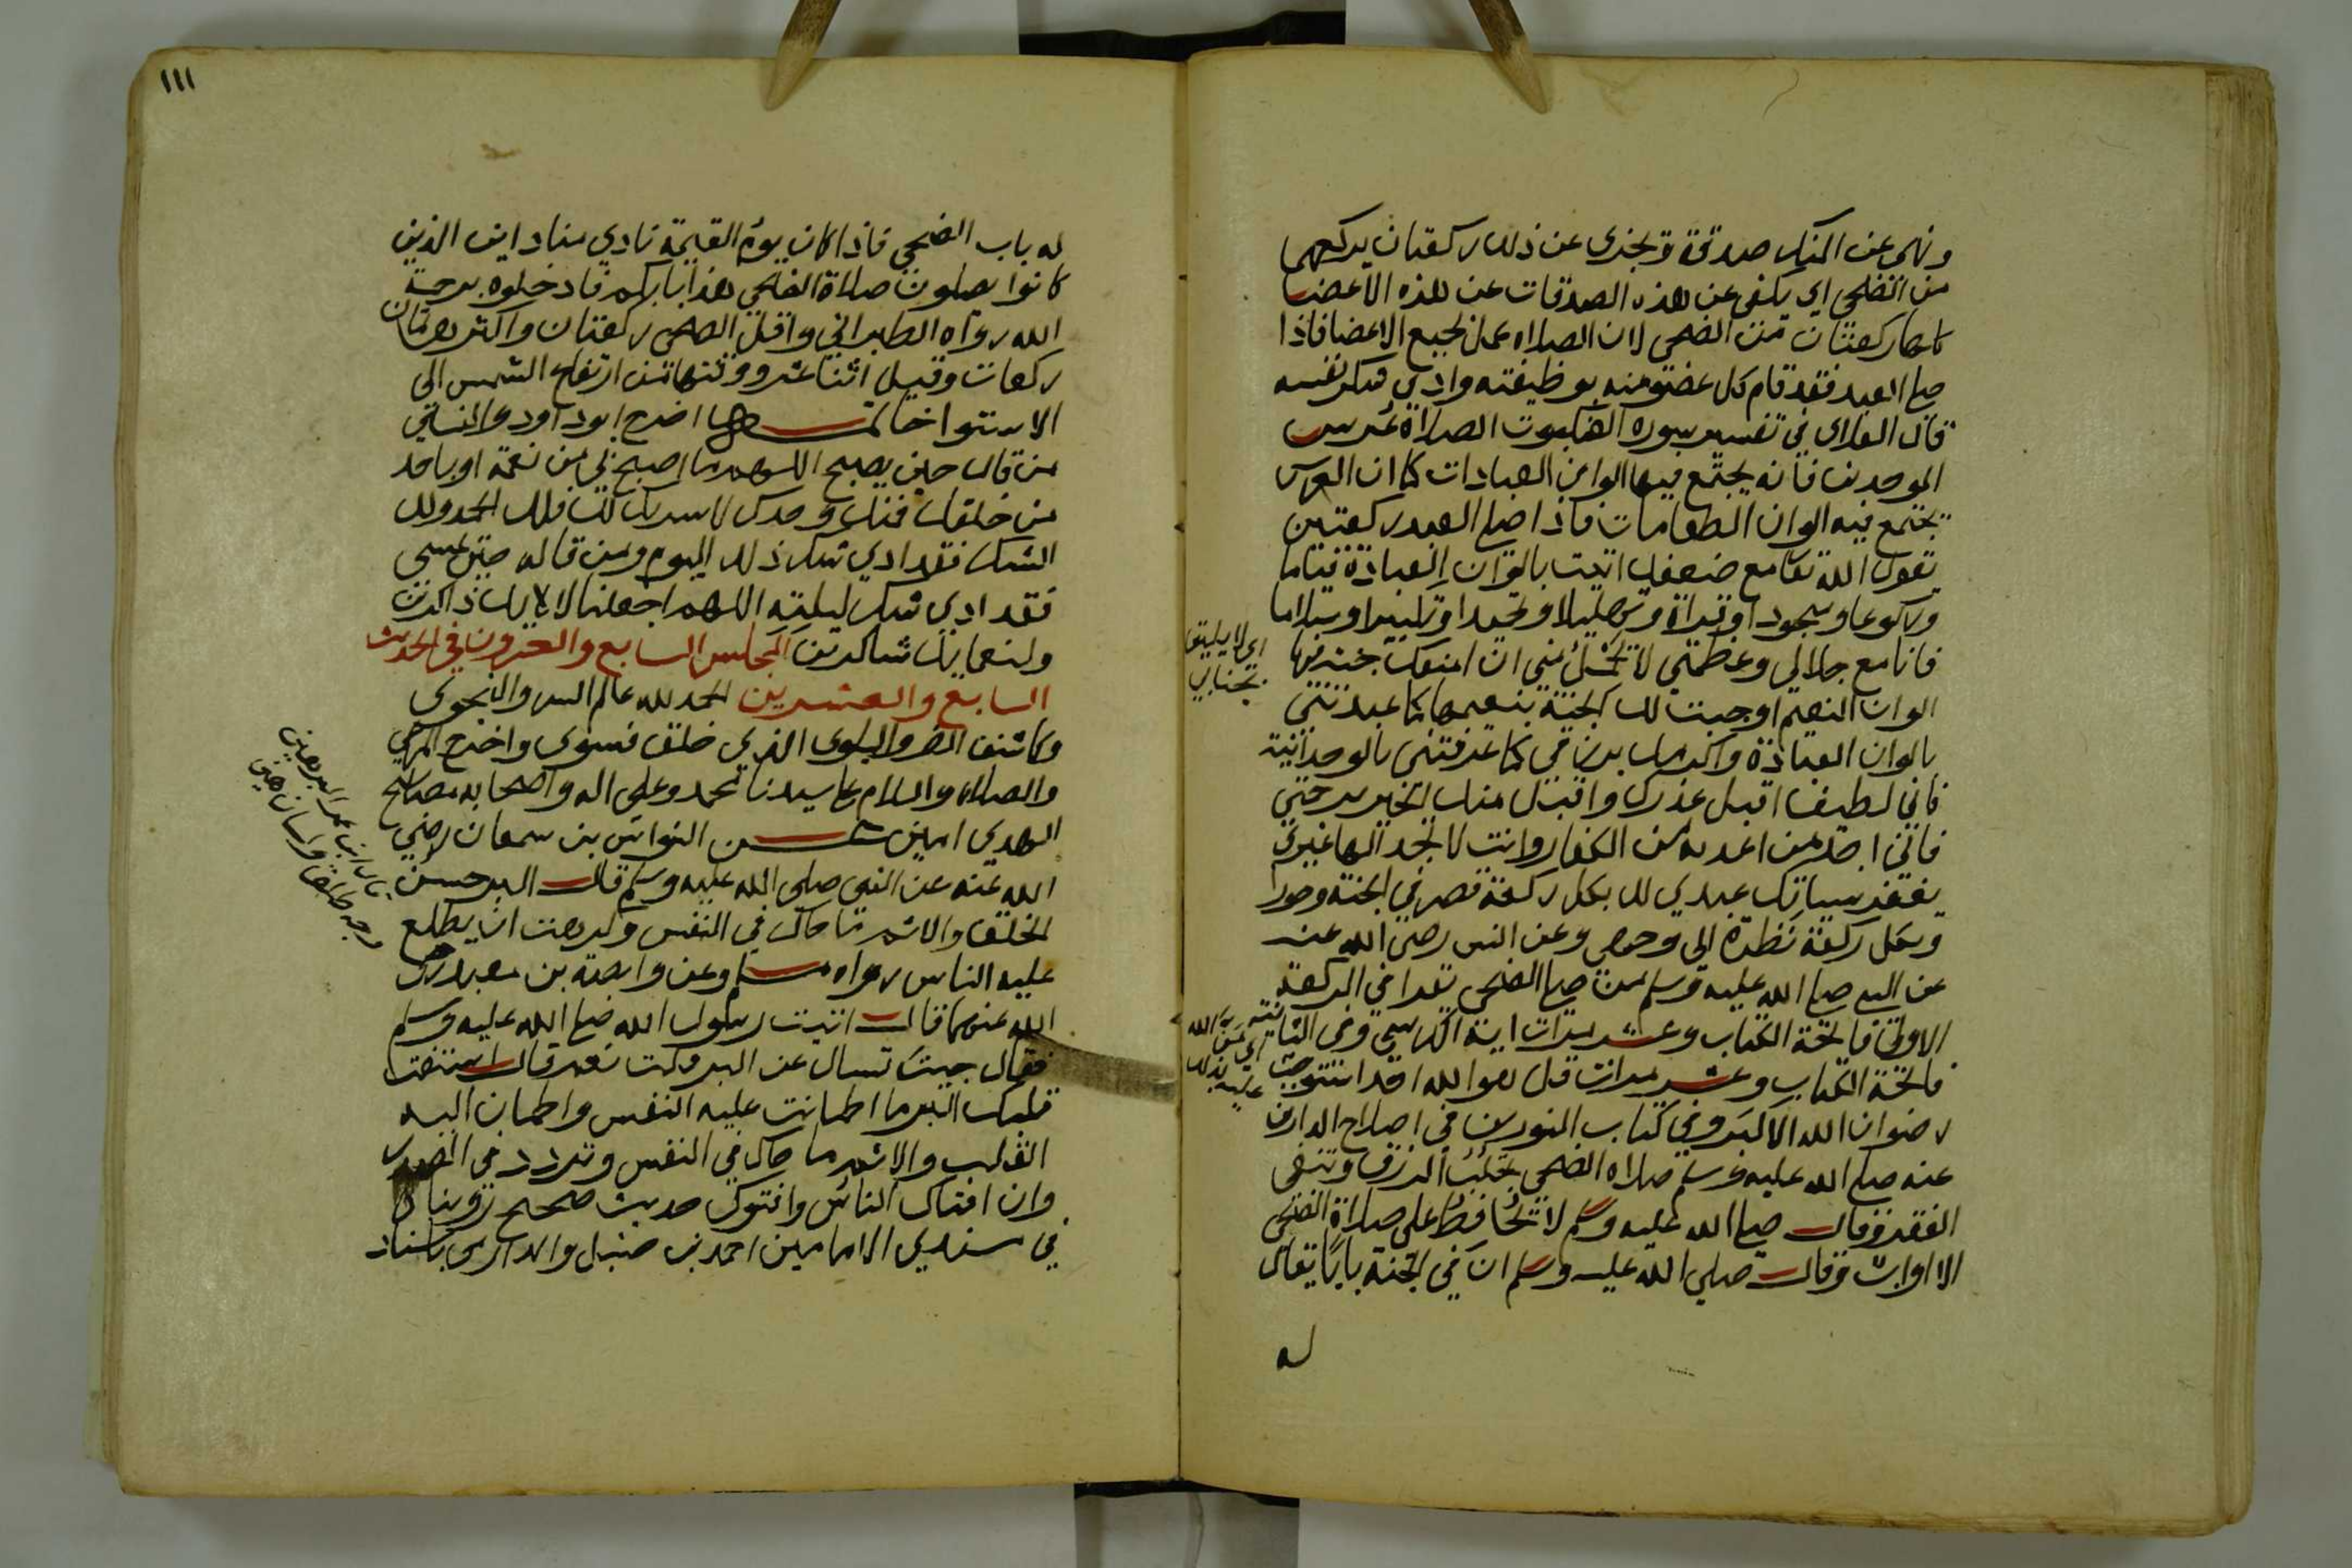 ونهي عن المنكر صدقة ويجزي عن ذلك ركعتان يركعهما
من الضحي اي يكفي عن هذه الصدقات عن هذه الاعضا
ركعتان من الضحي لان الصلاه عمل لجميع الاعضا فاذا
صلي العبد فقد قام كل عضو منه بوظيفته وادي شكر نفسه
قال العلاي في تفسير سورة العنكبوت الصلاة عرس
الموحدين فانه يجتمع فيها الوان العبادات كما ان العرس
يجتمع فيه الوان الطعامات فاذا صلي العبد ركعتين
يقول الله تعا مع ضعفك اتيت بالوان العبادة قياما
وركوعا وسجودا وقراة وتهليلا وتحميدا وتكبيرا وسلاما
فانا مع جلالي وعظمتي لا يجمل مني ان امنعك جنة فيها
الوان النعيم اوجبت لك الجنة بنعيمها كما عبدتني
بالوان العبادة واكرمك برؤيتي كما عرفتني بالوحدانية
فاني لطيف اقبل عذرك واقبل منك الخير برحمتي
فاني اجد من اعذبه من الكفار وانت لا تجد الها غيري
يغفر سياتك عبدي لك بكل ركعة قصر في الجنة وحورا
وبكل ركعة نظرة الي وجهي وعن انس رضي الله عنه
عن النبي صلي الله عليه وسلم من صلي الضحي يقرا في الركعة
الاولي فاتحة الكتاب وعشر مرات اية الكرسي وفي الثانية
فاتحة الكتاب وعشر مرات قل هو الله احد استوجب
رضوان الله الاكبر وفي كتاب النورين في اصلاح الدارين
عنه صلي الله عليه وسلم صلاه الضحي تجلب الرزق وتنفي
الفقر وقال صلي الله عليه وسلم لا يحافظ على صلاة الضحي
الا اواب وقال صلي الله عليه وسلم ان في الجنة بابا يقال
له
اي لا يليق
بجنابي
١١١
له باب الضحي فاذا كان يوم القيمة نادي مناد اين الذين
كانوا يصلون صلاة الضحي هذا بابكم فادخلوه برحمة
الله رواه الطبراني واقل الضحي ركعتان واكثرها ثمان
ركعات وقيل اثنا عشر ووقتها من ارتفاع الشمس الي
الاستوا خاتمــة اخرج ابوداود والنساي
من قال حين يصبح اللهم ما اصبح بي من نعمة او باحد
من خلقك فمنك وحدك لا شريك لك فلك الحمد ولك
الشكر فقد ادي شكر ذلك اليوم ومن قاله حين يمسي
فقد ادي شكر ليلته اللهم اجعلنا لالايك ذاكرين
ولنعمايك شاكرين المجلس السابع والعشرون في الحديث
السابع والعشرين الحمد لله عالم السر والنجوي
وكاشف الضر والبلوي الذي خلق فسوي واخرج المرعي
والصلاة والسلام علي سيدنا محمد وعلى اله واصحابه مصابيح
الهدي امين عــن النواس بن سمعان رضي
الله عنه عن النبي صلى الله عليه وسلم قال البر حسن
الخلق والاثم ما حاك في النفس وكرهت ان يطلع
عليه الناس رواه مسلم وعن وابصة بن معبد رضي
الله عنهما قال اتيت رسول الله صلي الله عليه وسلم
فقال جيت تسال عن البر قلت نعم قال استفت
قلبك البر ما اطمانت عليه النفس واطمان اليه
القلب والاثم ما حاك في النفس وتردد في الصدر
وان افتاك الناس وافتوك حديث صحيح رويناه
في مسندي الامامين احمد بن حنبل والدارمي باسناد